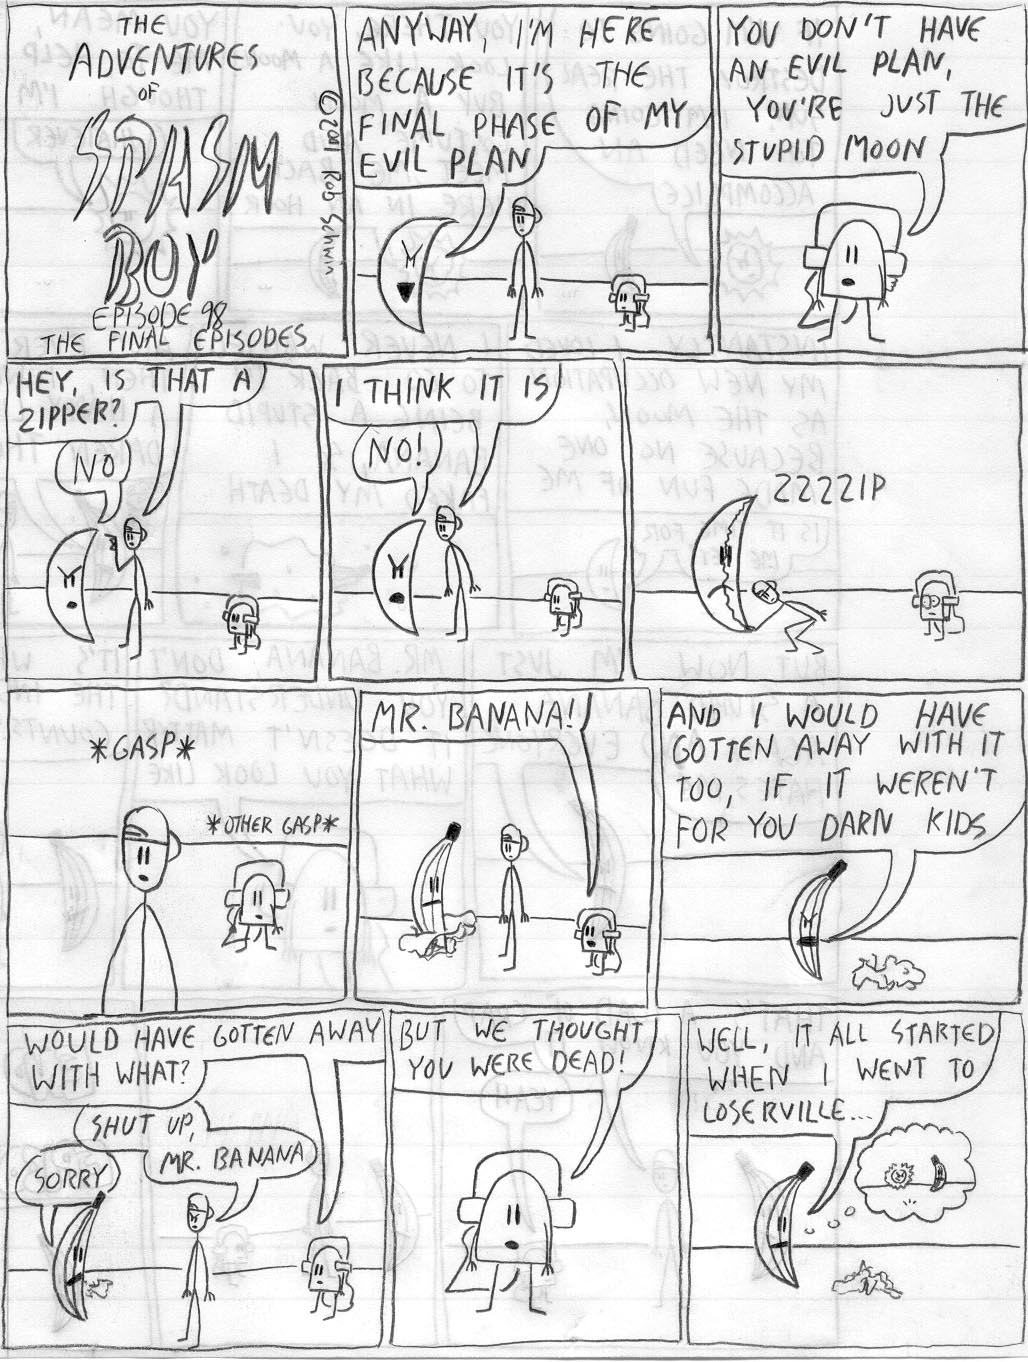 THE
ADVENTURES
OF
SPASM
BOY
EPISODE 98
THE FINAL EPISODES
©2011 Rob Schwin
ANYWAY, I'M HERE
BECAUSE IT'S THE
FINAL PHASE OF MY
EVIL PLAN
YOU DON'T HAVE
AN EVIL PLAN,
YOU'RE JUST THE
STUPID MOON
HEY, IS THAT A
ZIPPER?
NO
I THINK IT IS
NO!
ZZZZIP
*GASP*
*OTHER GASP*
MR. BANANA!
AND I WOULD HAVE
GOTTEN AWAY WITH IT
TOO, IF IT WEREN'T
FOR YOU DARN KIDS
WOULD HAVE GOTTEN AWAY
WITH WHAT?
SHUT UP,
MR. BANANA
SORRY
BUT WE THOUGHT
YOU WERE DEAD!
WELL, IT ALL STARTED
WHEN I WENT TO
LOSERVILLE...